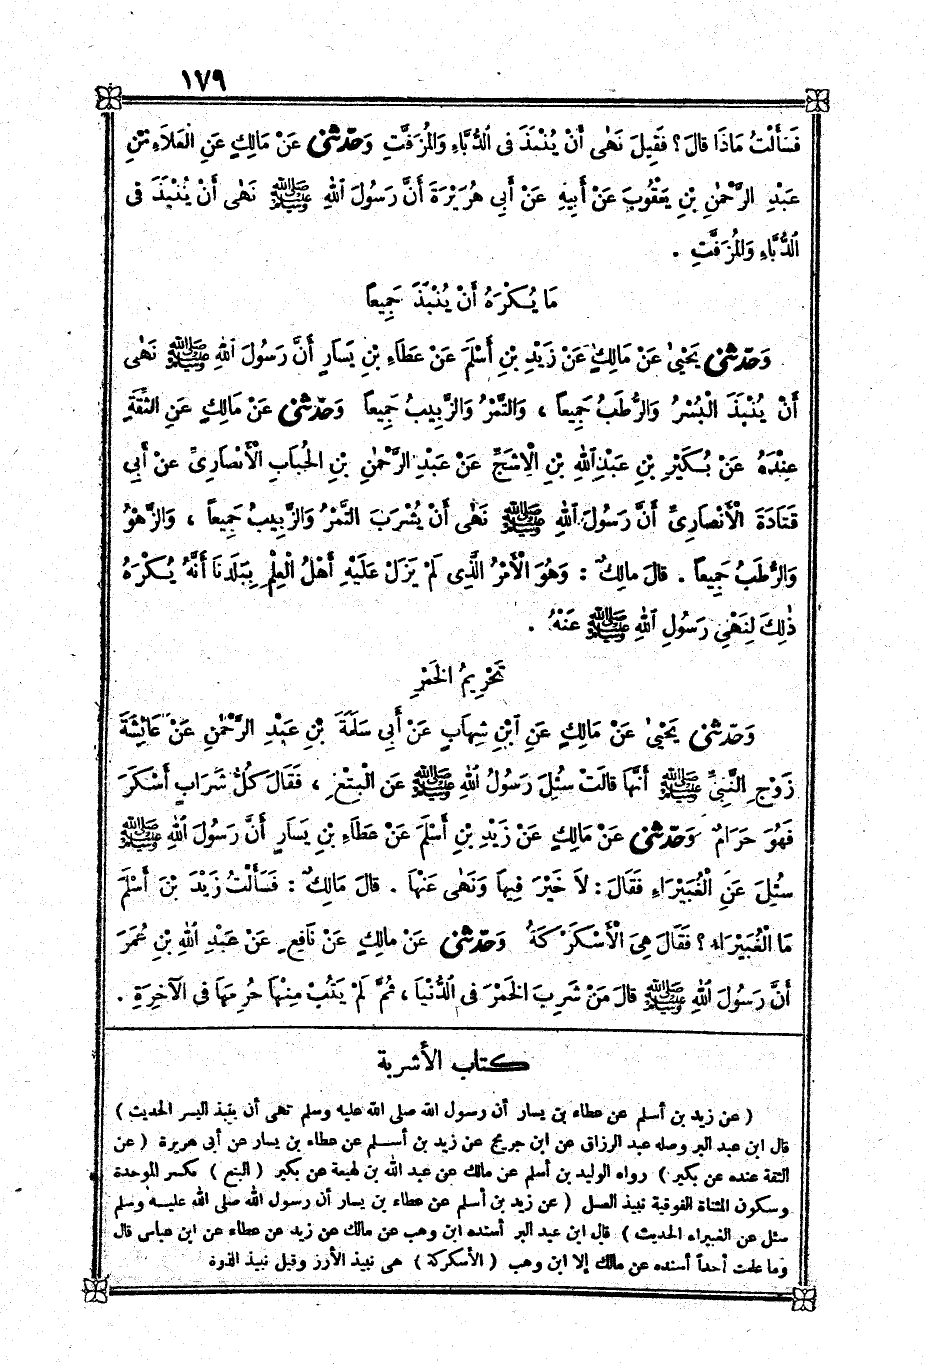 ١٧٩
فَسَأَلْتُ مَاذَا قَالَ؟ فَقِيلَ نَهَى أَنْ يُنْبَذَ فِي الدُّبَّاءِ وَالْمُزَفَّتِ وَحَدَّثَنِي عَنْ مَالِكٍ عَنِ الْعَلَاءِ بْنِ
عَبْدِ الرَّحْمٰنِ بْنِ يَعْقُوبَ عَنْ أَبِيهِ عَنْ أَبِي هُرَيْرَةَ أَنَّ رَسُولَ اللهِ ﷺ نَهَى أَنْ يُنْبَذَ فِي
الدُّبَّاءِ وَالْمُزَفَّتِ .
مَا يُكْرَهُ أَنْ يُنْبَذَ جَمِيعاً
وَحَدَّثَنِي يَحْيَىٰ عَنْ مَالِكٍ عَنْ زَيْدِ بْنِ أَسْلَمَ عَنْ عَطَاءِ بْنِ يَسَارٍ أَنَّ رَسُولَ اللهِ ﷺ نَهَى
أَنْ يُنْبَذَ الْبُسْرُ وَالرُّطَبُ جَمِيعاً ، وَالتَّمْرُ وَالزَّبِيبُ جَمِيعاً وَحَدَّثَنِي عَنْ مَالِكٍ عَنِ الثِّقَةِ
عِنْدَهُ عَنْ بُكَيْرِ بْنِ عَبْدِ اللهِ بْنِ الْأَشَجِّ عَنْ عَبْدِ الرَّحْمٰنِ بْنِ الْحُبَابِ الْأَنْصَارِيِّ عَنْ أَبِي
قَتَادَةَ الْأَنْصَارِيِّ أَنَّ رَسُولَ اللهِ ﷺ نَهَى أَنْ يُشْرَبَ التَّمْرُ وَالزَّبِيبُ جَمِيعاً ، وَالزَّهْوُ
وَالرُّطَبُ جَمِيعاً . قَالَ مَالِكٌ : وَهُوَ الْأَمْرُ الَّذِي لَمْ يَزَلْ عَلَيْهِ أَهْلُ الْعِلْمِ بِبَلَدِنَا أَنَّهُ يُكْرَهُ
ذٰلِكَ لِنَهْيِ رَسُولِ اللهِ ﷺ عَنْهُ .
تَحْرِيمُ الْخَمْرِ
وَحَدَّثَنِي يَحْيَىٰ عَنْ مَالِكٍ عَنِ ابْنِ شِهَابٍ عَنْ أَبِي سَلَمَةَ بْنِ عَبْدِ الرَّحْمٰنِ عَنْ عَائِشَةَ
زَوْجِ النَّبِيِّ ﷺ أَنَّهَا قَالَتْ سُئِلَ رَسُولُ اللهِ ﷺ عَنِ الْبِتْعِ ، فَقَالَ كُلُّ شَرَابٍ أَسْكَرَ
فَهُوَ حَرَامٌ وَحَدَّثَنِي عَنْ مَالِكٍ عَنْ زَيْدِ بْنِ أَسْلَمَ عَنْ عَطَاءِ بْنِ يَسَارٍ أَنَّ رَسُولَ اللهِ ﷺ
سُئِلَ عَنِ الْغُبَيْرَاءِ فَقَالَ : لَا خَيْرَ فِيهَا وَنَهَى عَنْهَا . قَالَ مَالِكٌ : فَسَأَلْتُ زَيْدَ بْنَ أَسْلَمَ
مَا الْغُبَيْرَاءُ؟ فَقَالَ هِيَ الْأَسْكَرْكَةُ وَحَدَّثَنِي عَنْ مَالِكٍ عَنْ نَافِعٍ عَنْ عَبْدِ اللهِ بْنِ عُمَرَ
أَنَّ رَسُولَ اللهِ ﷺ قَالَ مَنْ شَرِبَ الْخَمْرَ فِي الدُّنْيَا ، ثُمَّ لَمْ يَتُبْ مِنْهَا حُرِمَهَا فِي الْآخِرَةِ .
كتاب الأشربة
( عن زيد بن أسلم عن عطاء بن يسار أن رسول الله صلى الله عليه وسلم نهى أن ينبذ البسر الحديث )
قال ابن عبد البر وصله عبد الرزاق عن ابن جريج عن زيد بن أسلم عن عطاء بن يسار عن أبي هريرة ( عن
الثقة عنده عن بكير ) رواه الوليد بن أسلم عن مالك عن عبد الله بن لهيعة عن بكير ( البتع ) بكسر الموحدة
وسكون المثناة الفوقية نبيذ العسل ( عن زيد بن أسلم عن عطاء بن يسار أن رسول الله صلى الله عليه وسلم
سئل عن الغبيراء الحديث ) قال ابن عبد البر أسنده ابن وهب عن مالك عن زيد عن عطاء عن ابن عباس قال
وما علمت أحداً أسنده عن مالك إلا ابن وهب ( الأسكركة ) هي نبيذ الأرز وقيل نبيذ الذرة